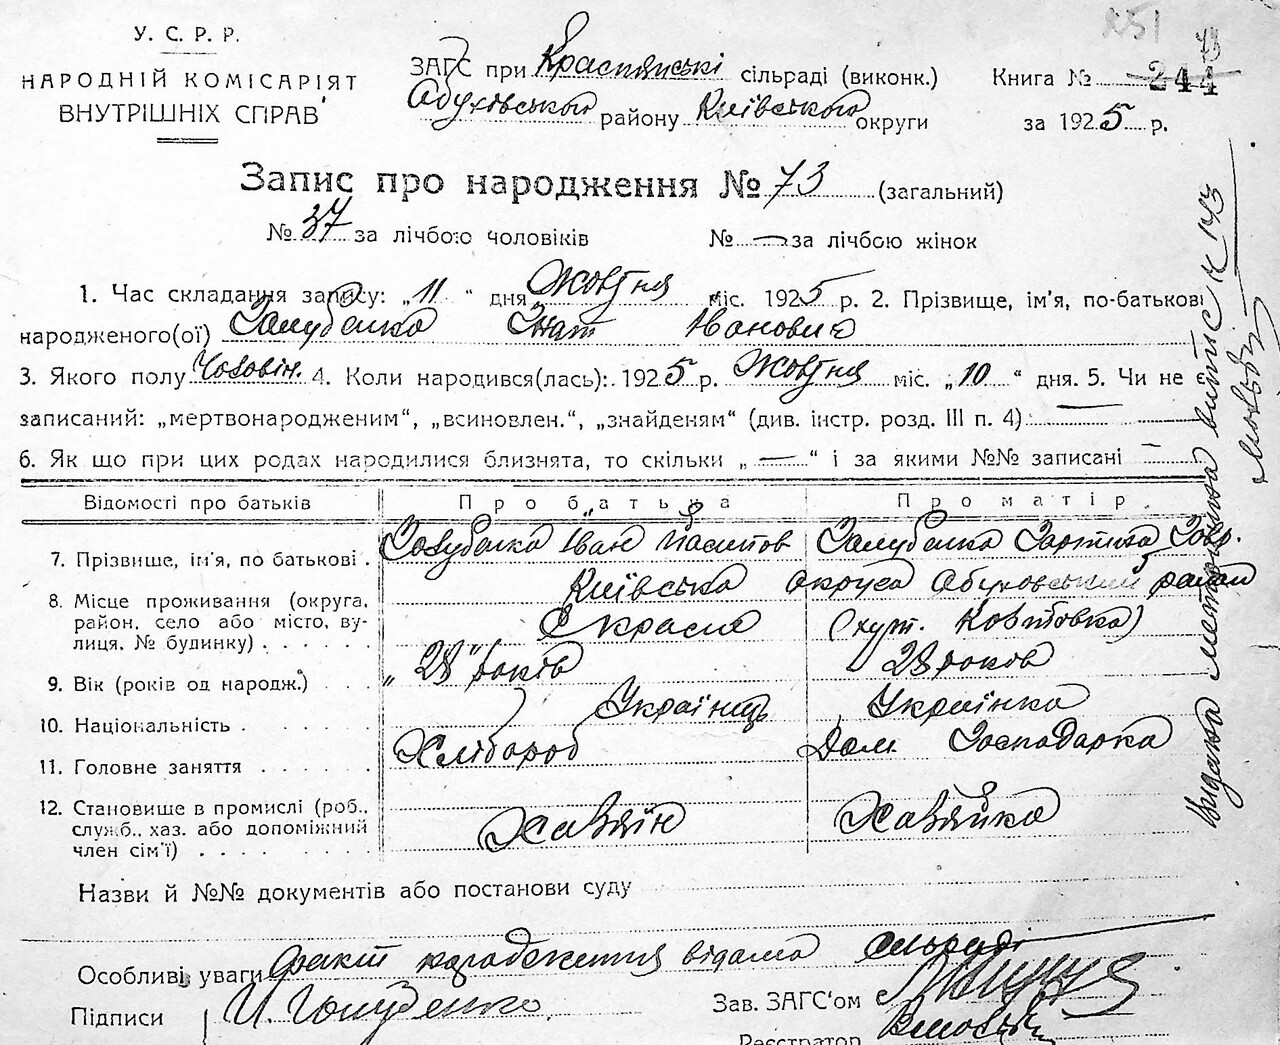 251
У. С. Р. Р.
НАРОДНІЙ КОМІСАРІЯТ
ВНУТРІШНІХ СПРАВ
ЗАГС при Краснянські сільраді (виконк.)
Обухівського району Київського округи
Книга № 244 73
за 1925 р.
Запис про народження № 73 (загальний)
№ 37 за лічбою чоловіків № — за лічбою жінок
1. Час складання запису: „11“ дня Жовтня міс. 1925 р. 2. Прізвище, ім'я, по-батькові
народженого(ої) Голубенко Гнат Іванович
3. Якого полу Чоловін. 4. Коли народився(лась): 1925 р. Жовтня міс. „10“ дня. 5. Чи не є
записаний: „мертвонародженим“, „всиновлен.“, „знайденям“ (див. інстр. розд. III п. 4) —
6. Як що при цих родах народилися близнята, то скільки „—“ і за якими №№ записані —
Відомості про батьків Про батька Про матір.
7. Прізвище, ім'я, по батькові . Голубенко Іван Голубенко
8. Місце проживання (округа, район, село або місто, вулиця, № будинку) Київська округа Обуховський район
С Красня (хут. Ковтовка)
9. Вік (років од народж.) „28“ років 28 років
10. Національність Українець Українка
11. Головне заняття Хлібороб Дом. Господарка
12. Становище в промислі (роб., служб., хаз. або допоміжний член сім'ї) Хазяїн Хазяйка
Назви й №№ документів або постанови суду
Особливі уваги Факт народження відома сільраді
Підписи И. Голубенко
Зав. ЗАГС'ом
Реєстратор
Видана метрична витис №